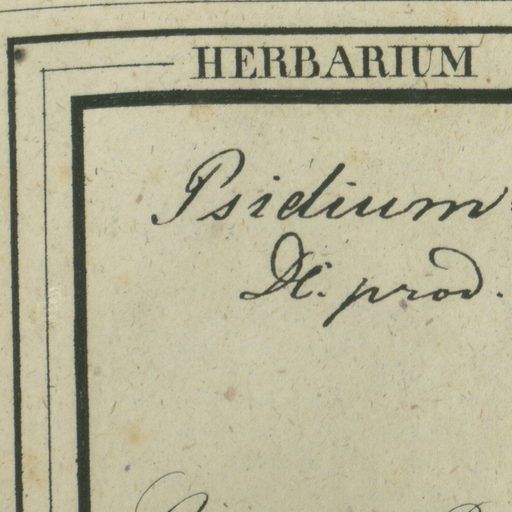 HERBARIUM
Psidium
DC. prod.